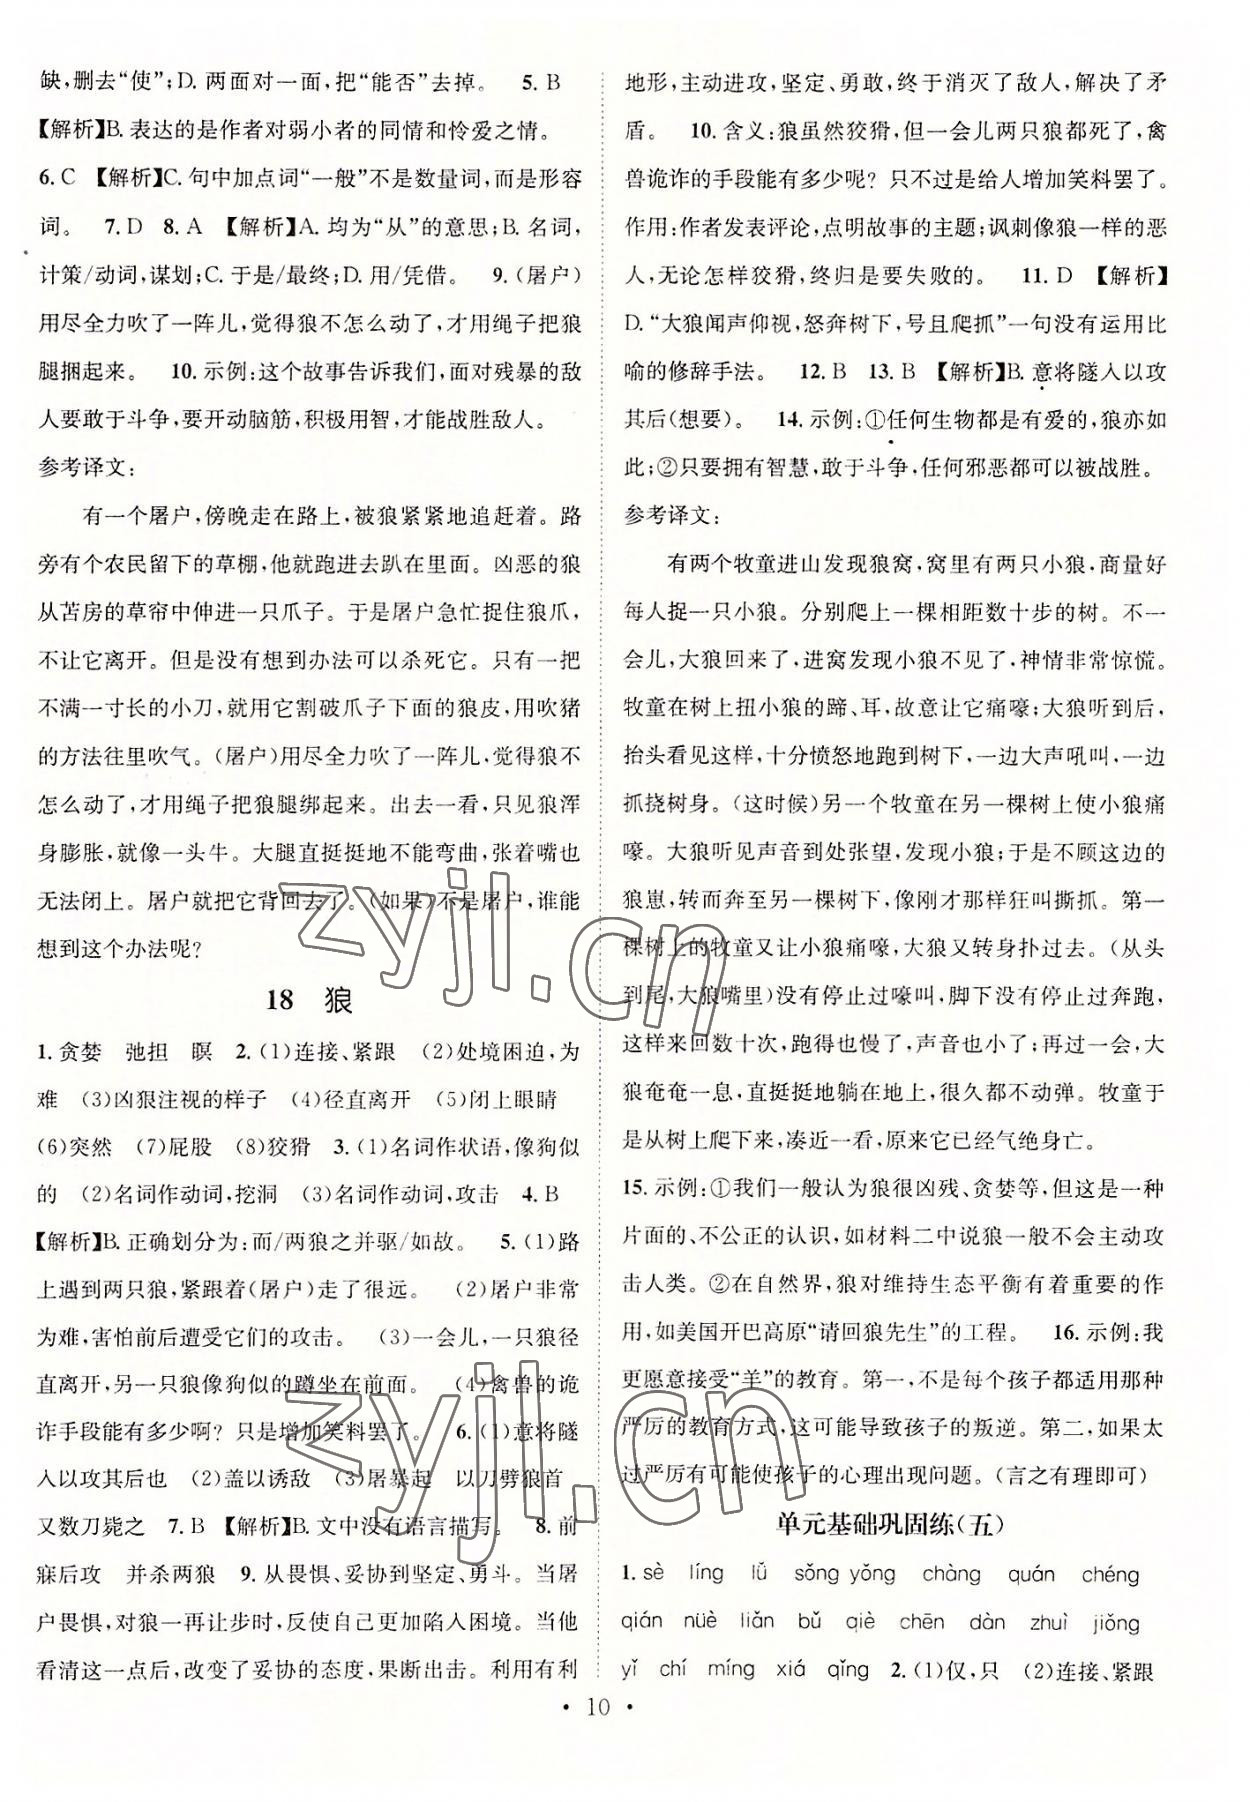 缺,删去“使”;D. 两面对一面,把“能否”去掉。 5. B
【解析】B. 表达的是作者对弱小者的同情和怜爱之情。
6. C 【解析】C. 句中加点词“一般”不是数量词,而是形容
词。 7. D 8. A 【解析】A. 均为“从”的意思;B. 名词,
计策/动词,谋划;C. 于是/最终;D. 用/凭借。 9. (屠户)
用尽全力吹了一阵儿,觉得狼不怎么动了,才用绳子把狼
腿捆起来。 10. 示例:这个故事告诉我们,面对残暴的敌
人要敢于斗争,要开动脑筋,积极用智,才能战胜敌人。
参考译文:
有一个屠户,傍晚走在路上,被狼紧紧地追赶着。路
旁有个农民留下的草棚,他就跑进去趴在里面。凶恶的狼
从苫房的草帘中伸进一只爪子。于是屠户急忙捉住狼爪,
不让它离开。但是没有想到办法可以杀死它。只有一把
不满一寸长的小刀,就用它割破爪子下面的狼皮,用吹猪
的方法往里吹气。(屠户)用尽全力吹了一阵儿,觉得狼不
怎么动了,才用绳子把狼腿绑起来。出去一看,只见狼浑
身膨胀,就像一头牛。大腿直挺挺地不能弯曲,张着嘴也
无法闭上。屠户就把它背回去了。(如果)不是屠户,谁能
想到这个办法呢?
18 狼
1. 贪婪 弛担 瞑 2. (1)连接、紧跟 (2)处境困迫,为
难 (3)凶狠注视的样子 (4)径直离开 (5)闭上眼睛
(6)突然 (7)屁股 (8)狡猾 3. (1)名词作状语,像狗似
的 (2)名词作动词,挖洞 (3)名词作动词,攻击 4. B
【解析】B. 正确划分为:而/两狼之并驱/如故。 5. (1)路
上遇到两只狼,紧跟着(屠户)走了很远。 (2)屠户非常
为难,害怕前后遭受它们的攻击。 (3)一会儿,一只狼径
直离开,另一只狼像狗似的蹲坐在前面。 (4)禽兽的诡
诈手段能有多少啊? 只是增加笑料罢了。 6. (1)意将隧
入以攻其后也 (2)盖以诱敌 (3)屠暴起 以刀劈狼首
又数刀毙之 7. B 【解析】B. 文中没有语言描写。 8. 前
寐后攻 并杀两狼 9. 从畏惧、妥协到坚定、勇斗。当屠
户畏惧,对狼一再让步时,反使自己更加陷入困境。当他
看清这一点后,改变了妥协的态度,果断出击。利用有利
地形,主动进攻,坚定、勇敢,终于消灭了敌人,解决了矛
盾。 10. 含义:狼虽然狡猾,但一会儿两只狼都死了,禽
兽诡诈的手段能有多少呢? 只不过是给人增加笑料罢了。
作用:作者发表评论,点明故事的主题;讽刺像狼一样的恶
人,无论怎样狡猾,终归是要失败的。 11. D 【解析】
D. “大狼闻声仰视,怒奔树下,号且爬抓”一句没有运用比
喻的修辞手法。 12. B 13. B 【解析】B. 意将隧入以攻
其后(想要)。 14. 示例:①任何生物都是有爱的,狼亦如
此;②只要拥有智慧,敢于斗争,任何邪恶都可以被战胜。
参考译文:
有两个牧童进山发现狼窝,窝里有两只小狼,商量好
每人捉一只小狼。分别爬上一棵相距数十步的树。不一
会儿,大狼回来了,进窝发现小狼不见了,神情非常惊慌。
牧童在树上扭小狼的蹄、耳,故意让它痛嚎;大狼听到后,
抬头看见这样,十分愤怒地跑到树下,一边大声吼叫,一边
抓挠树身。(这时候)另一个牧童在另一棵树上使小狼痛
嚎。大狼听见声音到处张望,发现小狼;于是不顾这边的
狼崽,转而奔至另一棵树下,像刚才那样狂叫撕抓。第一
棵树上的牧童又让小狼痛嚎,大狼又转身扑过去。(从头
到尾,大狼嘴里)没有停止过嚎叫,脚下没有停止过奔跑,
这样来回数十次,跑得也慢了,声音也小了;再过一会,大
狼奄奄一息,直挺挺地躺在地上,很久都不动弹。牧童于
是从树上爬下来,凑近一看,原来它已经气绝身亡。
15. 示例:①我们一般认为狼很凶残、贪婪等,但这是一种
片面的、不公正的认识,如材料二中说狼一般不会主动攻
击人类。②在自然界,狼对维持生态平衡有着重要的作
用,如美国开巴高原“请回狼先生”的工程。 16. 示例:我
更愿意接受“羊”的教育。第一,不是每个孩子都适合这种
严厉的教育方式,这可能导致孩子的叛逆。第二,如果太
过严厉有可能使孩子的心理出现问题。(言之有理即可)
单元基础巩固练(五)
1. sè líng lǔ sǒng yǒng chàng quán chéng
qián nüè liǎn bǔ qiè chēn dàn zhuì jiǒng
yǐ chí míng xiá qǐng 2. (1)仅,只 (2)连接、紧跟
• 10 •
zyjl.cn
zyjl.cn